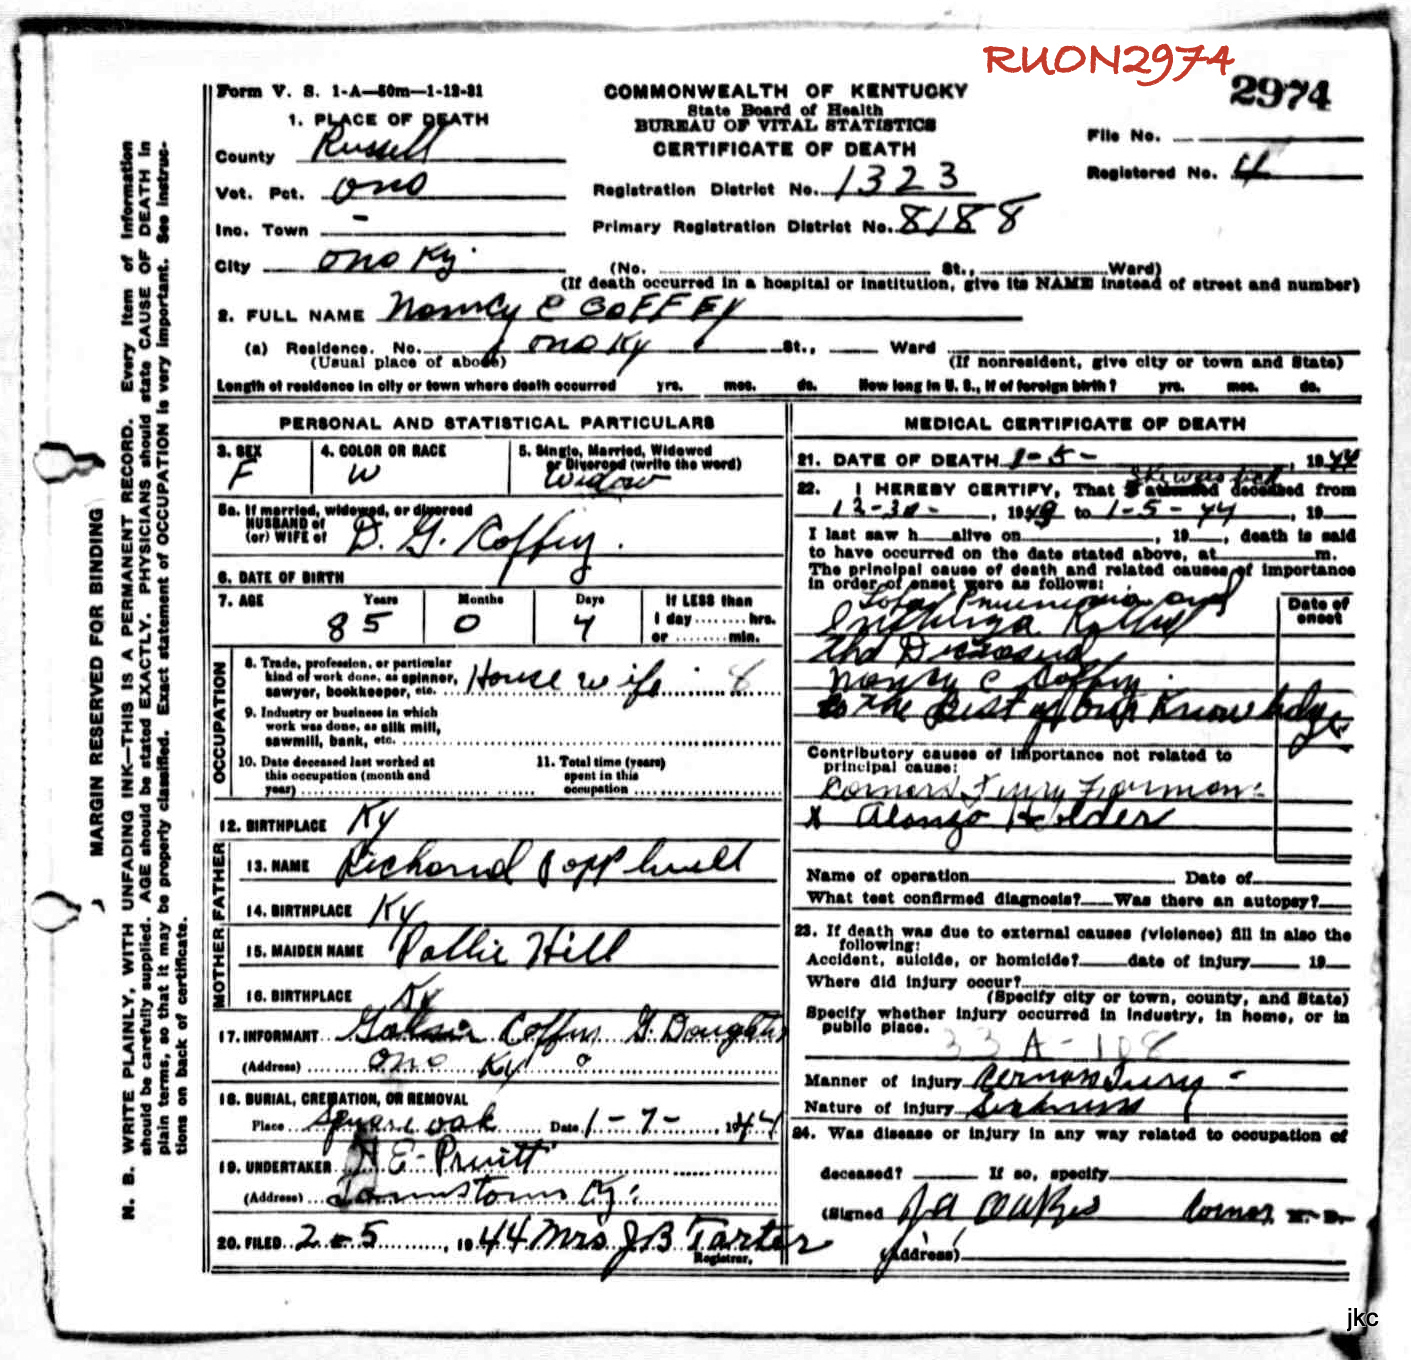 RUON2974
2974
Form V. S. 1-A—50m—1-12-31
COMMONWEALTH OF KENTUCKY
State Board of Health
BUREAU OF VITAL STATISTICS
CERTIFICATE OF DEATH
File No.
Registered No. 4
1. PLACE OF DEATH
County Russell
Vot. Pct. Ono
Inc. Town -
City Ono Ky.
Registration District No. 1323
Primary Registration District No. 8188
(No. St., Ward)
(If death occurred in a hospital or institution, give its NAME instead of street and number)
2. FULL NAME Nancy C COFFEY
(a) Residence. No. Ono Ky St., Ward
(Usual place of abode) (If nonresident, give city or town and State)
Length of residence in city or town where death occurred yrs. mos. ds. How long in U. S., if of foreign birth? yrs. mos. ds.
PERSONAL AND STATISTICAL PARTICULARS
3. SEX F
4. COLOR OR RACE W
5. Single, Married, Widowed
or Divorced (write the word)
Widow
5a. If married, widowed, or divorced
HUSBAND of
(or) WIFE of D. G. Coffey.
6. DATE OF BIRTH
7. AGE Years Months Days If LESS than
85 0 4 1 day hrs.
or min.
OCCUPATION
8. Trade, profession, or particular
kind of work done, as spinner,
sawyer, bookkeeper, etc. House wife 8
9. Industry or business in which
work was done, as silk mill,
sawmill, bank, etc.
10. Date deceased last worked at
this occupation (month and
year)
11. Total time (years)
spent in this
occupation
12. BIRTHPLACE Ky
FATHER
13. NAME Richard Popplwell
14. BIRTHPLACE Ky
MOTHER
15. MAIDEN NAME Pollie Hill
16. BIRTHPLACE Ky
17. INFORMANT Coffey G. Doughter
(Address) Ono Ky
18. BURIAL, CREMATION, OR REMOVAL
Place Square oak Date 1-7- 1944
19. UNDERTAKER H E. Pruitt
(Address) Jamestown Ky.
20. FILED 2-5, 1944 Mrs J B Tarter
Registrar.
MEDICAL CERTIFICATE OF DEATH
21. DATE OF DEATH 1-5-, 1944
She was sick
22. I HEREBY CERTIFY, That I attended deceased from
12-30-, 1943 to 1-5-44, 19
I last saw h alive on , 19 , death is said
to have occurred on the date stated above, at m.
The principal cause of death and related causes of importance
in order of onset were as follows:
Date of
onset
Lobar Pneumonia and
Influenza Killed
the Deceased
Nancy C Coffey.
to the Best of our Knowledge
Contributory causes of importance not related to
principal cause:
Corners Jury Formon
x Alonzo Holder
Name of operation Date of
What test confirmed diagnosis? Was there an autopsy?
23. If death was due to external causes (violence) fill in also the
following:
Accident, suicide, or homicide? date of injury 19
Where did injury occur?
(Specify city or town, county, and State)
Specify whether injury occurred in industry, in home, or in
public place.
33 A-108
Manner of injury
Nature of injury Sickness
24. Was disease or injury in any way related to occupation of
deceased? If so, specify
(Signed J A Oakes Cornor M. D.
(Address)
MARGIN RESERVED FOR BINDING
N. B. WRITE PLAINLY, WITH UNFADING INK—THIS IS A PERMANENT RECORD. Every item of information
should be carefully supplied. AGE should be stated EXACTLY. PHYSICIANS should state CAUSE OF DEATH in
plain terms, so that it may be properly classified. Exact statement of OCCUPATION is very important. See instruc-
tions on back of certificate.
jkc